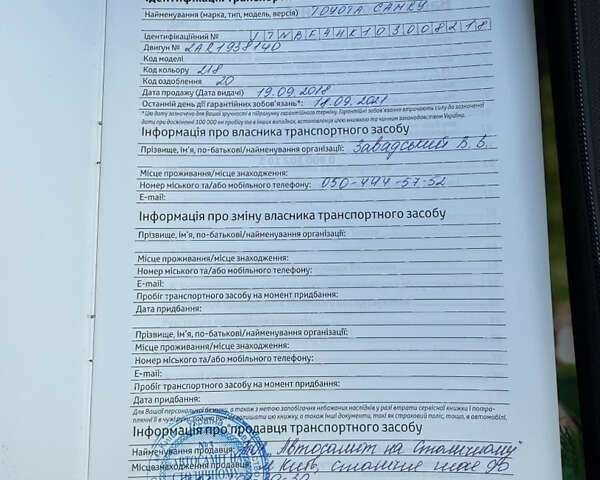 Ідентифікація транспорт
Найменування (марка, тип, модель, версія) TOYOTA CAMRY
Ідентифікаційний №
Двигун № 2AR1938140
Код моделі
Код кольору 218
Код оздоблення 20
Дата продажу (Дата видачі) 19.09.2018
Останній день дії гарантійних зобов'язань*: 18.09.2021
* Цю дату зазначено для Вашої зручності в підрахунку гарантійного терміну. Гарантійні зобов'язання втрачають силу до зазначеної
дати при досягненні 100 000 км пробігу та в інших випадках, встановлених цією книжкою та чинним законодавством України.
Інформація про власника транспортного засобу
Прізвище, ім'я, по-батькові/найменування організації: Завадський В.В.
Місце проживання/місце знаходження:
Номер міського та/або мобільного телефону: 050-444-57-52
E-mail:
Інформація про зміну власника транспортного засобу
Прізвище, ім'я, по-батькові/найменування організації:
Місце проживання/місце знаходження:
Номер міського та/або мобільного телефону:
E-mail:
Пробіг транспортного засобу на момент придбання:
Дата придбання:
Прізвище, ім'я, по-батькові/найменування організації:
Місце проживання/місце знаходження:
Номер міського та/або мобільного телефону:
E-mail:
Пробіг транспортного засобу на момент придбання:
Дата придбання:
Для Вашої персональної безпеки, а також з метою запобігання небажаних наслідків у разі втрати сервісної книжки і потра-
плянні її в чужі не залишати цю книжку, а також інші документи, такі як страховий поліс, тощо, в автомобілі.
Інформація про продавця транспортного засобу
Найменування продавця: ТОВ „Автосаміт на Столичному"
Місцезнаходження продавця: м Київ,